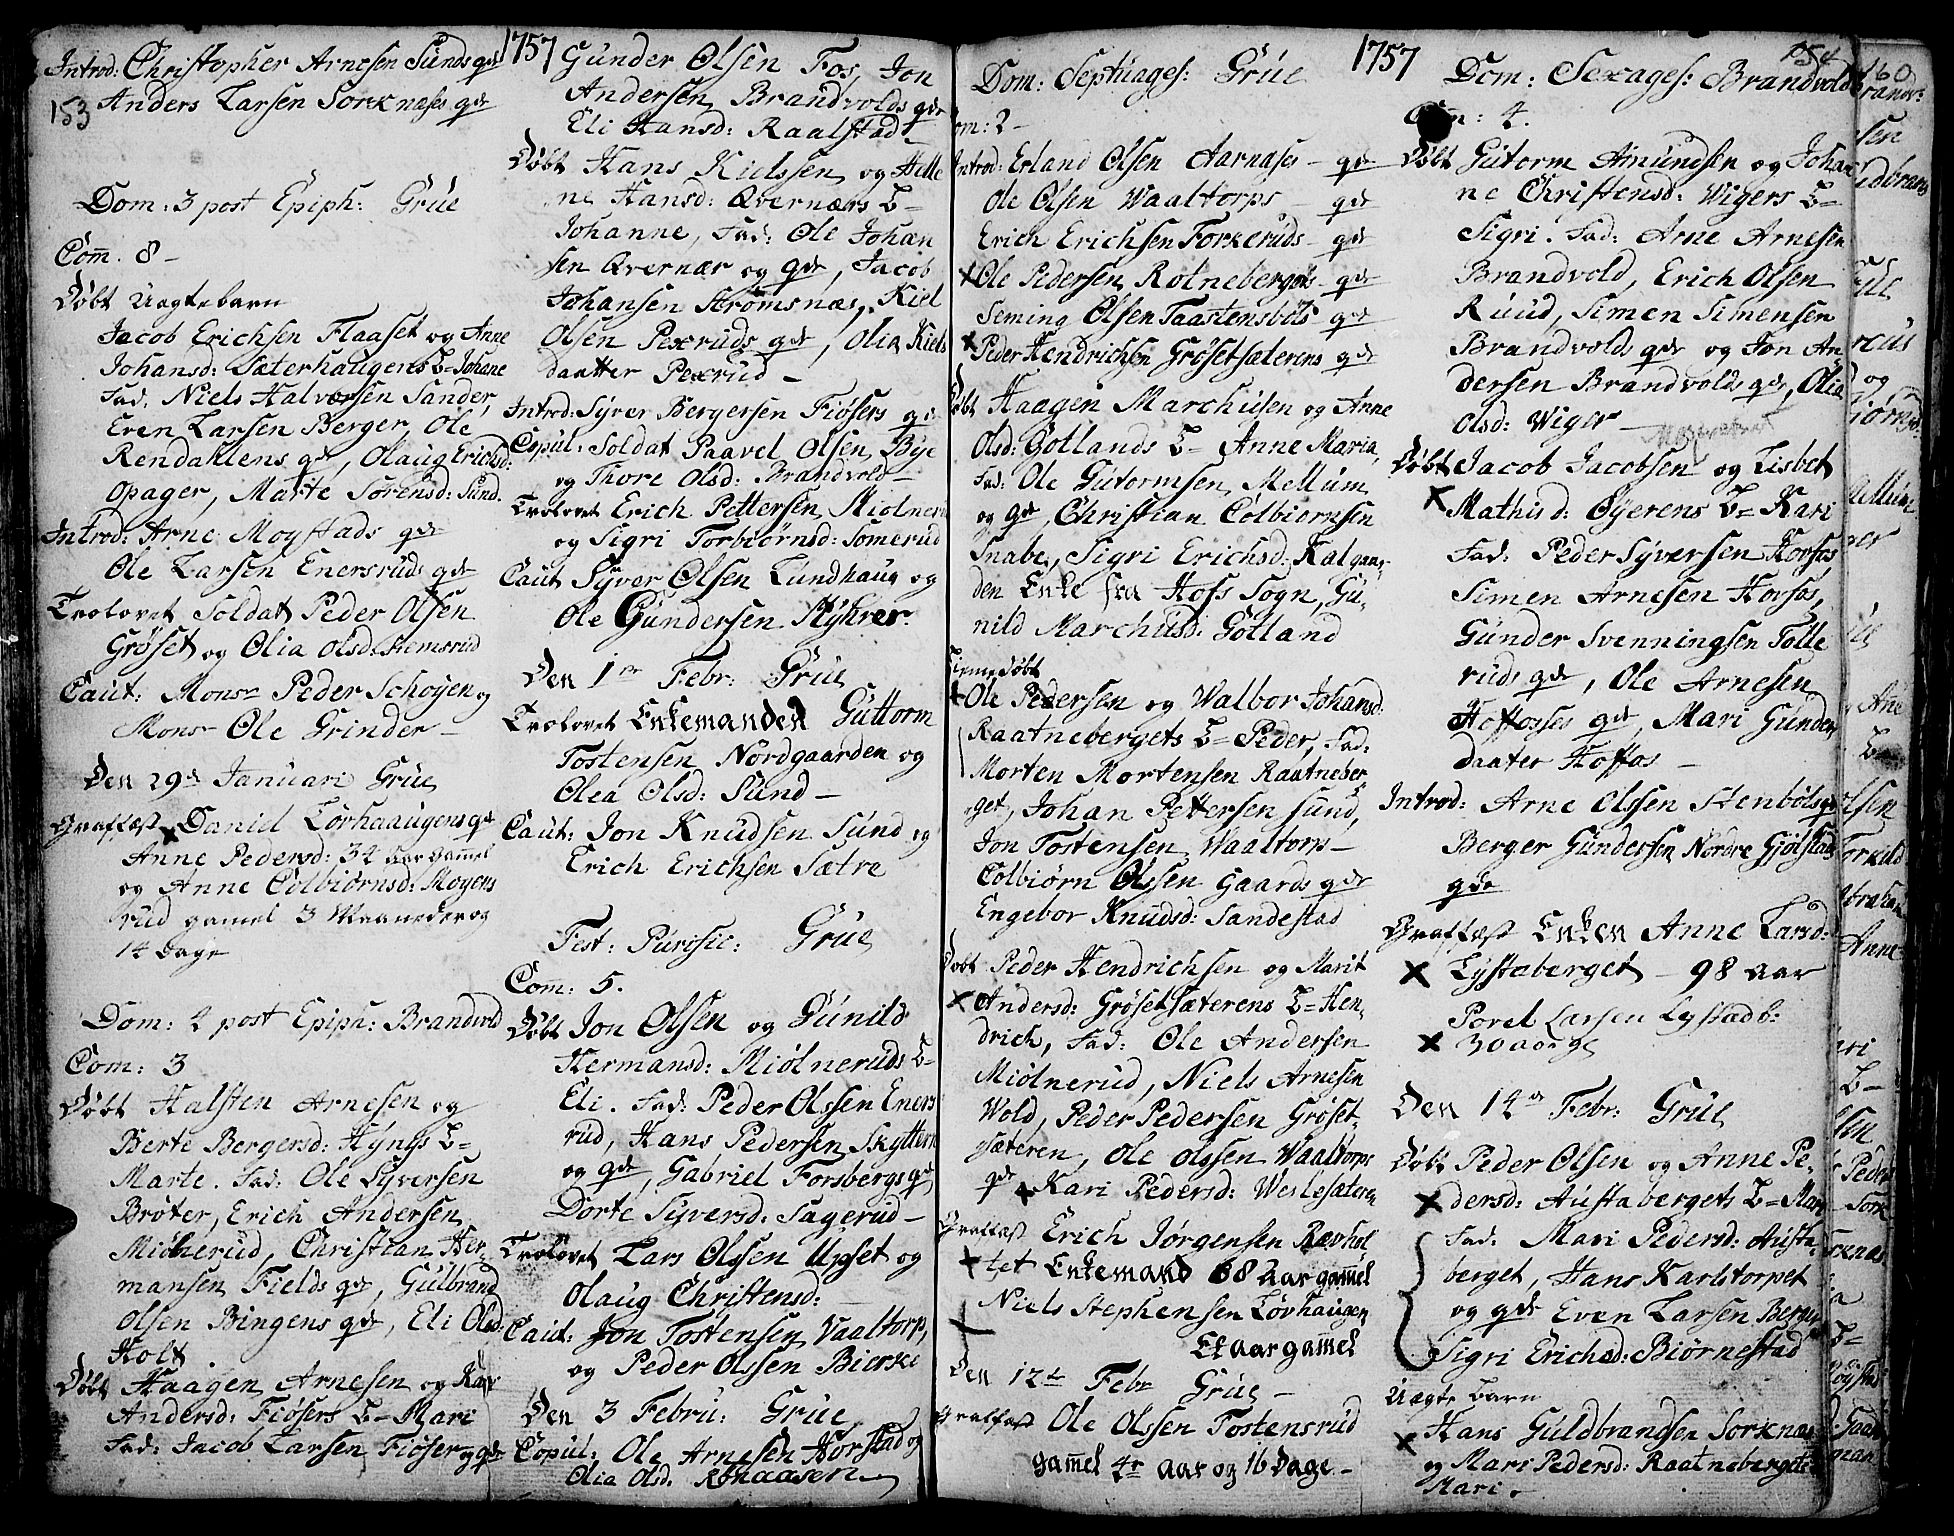 1757
153
Introd: Christopher Arnesen Sunds qde
Anders Larsen Sorknæses qde
Dom: 3 post Epiph: Grüe
Com̄. 8 -
Døbt Uægtebarn
Jacob Erichsen Flaaset og Anne
Johansd: Sæterhaugens B- Johane
Fad. Niels Halvorsen Sander,
Even Larsen Berger, Ole
Rendahlens qde, Olaug Erichsd:
Opager, Marte Sørensd: Sund.
Introd: Arne Moystads qde
Ole Larsen Enersruds qde
Trolovet Soldat Peder Olsen
Grøset og Olia Olsd: Hemsrud
Caut: Monsr Peder Schøyen og
Monsr Ole Grinder -
Den 29de Januari Grüe
Graffæst Daniel Lørhaaugens qde
Anne Pedersd: 34 aar gammel
og Anne Colbiørnsd: Moyens
rud gamel 3 Maaneder og
14 Dage
Dom: 4 post Epiph: Brandvold
Com: 3
Døbt Halsten Arnesen og
Berte Bergersd: Hyngs B-
Marte. Fad: Ole Syversen
Brøter, Erich Andersen
Miølnerud, Christian Her-
mansen Fields qde, Gulbrand
Olsen Bingens qde, Eli Olsd:
Holt
Døbt Haagen Arnesen og Kari
Andersd: Fiøsers B- Mari
Fad: Jacob Larsen Fiøser og qde
Gunder Olsen Fos, Jon
Andersen Brandvolds qde
Eli Hansd: Raalstad -
Døbt Hans Kielssen og Helle
ne Hansd: Qvernærs B-
Johanne, Fad: Ole Johan
sen Qvernær og qde, Jacob
Johansen Strømsnæs, Kiel
Olsen Pexruds qde, Olia Kiels
daatter Pexrud -
Introd: Syver Bergersen Fiøsers qde
Copul: Soldat Paavel Olsen Bye
og Thore Olsd: Brandvold -
Trolovet Erich Pettersen Miølneru
og Sigri Torbiørnsd: Somerud
Caut Syver Olsen Lundhaug og
Ole Gundersen Nyhrer
Den 1te Febr: Grüe
Trolovet Enkemanden Guttorm
Tostensen Nordgaarden og
Olea Olsd: Sund -
Caut: Jon Knudsen Sund og
Erich Erichsen Sætre
Fest: Purific: Grüe
Com: 5.
Døbt Jon Olsen og Gunild
Hermansd: Miølneruds B-
Eli. Fad: Peder Olssen Eners
rud, Hans Pedersen Skyttern
og qde, Gabriel Forsbergs qde
Dorte Syversd: Sagerud -
Trolovet Lars Olssen Upset og
Olaug Christensd: -
Caut: Jon Tostensen Vaaltorp,
og Peder Olssen Bierke
Den 3 Febru: Grüe
Copul: Ole Arnesen Horstad og
Olia Olsd.
1757
Dom: Septuages: Grüe
om: 2 -
Introd: Erland Olsen Aarnæses - qde
Ole Olsen Waaltorps - qde
Erich Erichsen Forkeruds - qde
x Ole Pedersen Rotnebergets - qde
Seming Olsen Taastensbøls qde
x Peder Hendrichsen Grøsetsæterens qde
Døbt Haagen Marchusen og Anne
Olsd: Gotlands B- Anne Maria,
Fad: Ole Gutormsen Mellum
og qde, Christian Colbiornsen
Snabe, Sigri Erichsd: Kalgaar-
den Enke fra Hofs Sogn, Gu-
nild Marchusd: Gotland
Hiemmedøbt
Ole Pedersen og Walbor Johansd:
Raatnebergets B- Peder, Fad:
Morten Mortensen Raatneber
get, Johan Pettersen Sund,
Jon Tostensen Waaltorp -
Colbiørn Olssen Gaards qde
Engebor Knudsd: Sandestad
Døbt Peder Hendrichsen og Marit
x Andersd: Grøsetsæterens B- Hen-
drich, Fad: Ole Andersen
Miølnerud, Niels Arnesen
Wold, Peder Pedersen Grøset-
sæteren, Ole Olssen Waaltorps
qde x Kari Pedersd: Weslesæteren
Graffæst Erich Jørgensen Rævhol
x tet Enkemand 68 Aar gammel
Niels Stephensen Løvhaugen
Et aar gammel
Den 12te Febr Grüe -
Grafffæst Ole Olssen Tostensrud
gammel 4r aar og 16 Dage -
154
Dom: Sexages: Brandvold
Com: 4.
Døbt Gutorm Amundsen og Johan
ne Christensd: Wigers B-
Sigri. Fad: Arne Arnesen
Brandvold, Erich Olsen
Ruud, Simen Simensen
Brandvolds qde og Jon An-
dersen Brandvolds qde, Olia
Olsd: Wiger -
Døbt Jacob Jacobsen og Lisbet
x Mathisd: Øyerens B- Kari
Fad: Peder Syversen Horsøs
Simen Arnesen Horsøs,
Gunder Svenningsen Tolle
ruds qde, Ole Arnesen
Hoffoses qde, Mari Gunder
daater Hoffos -
Introd: Arne Olssen Stenbøls qde
Berger Gunderssen Nordre Gjølstads
qde
Graffæst Enken Anne Larsd:
x Lystaberget - 98 aar
Povel Larsen Lystadb:
x 30 aar gl
Den 14de Febr: Grüe
Døbt Peder Olsen og Anne Pe-
x dersd: Austabergets B- Mari
Fad: Mari Pedersd: Austa-
berget, Hans Karlstorpet
og qde Even Larsen Berger
Sigri Erichsd: Biørnestad
Uægte barn
x Hans Guldbrandsen Sorknæs
og Mari Pedersd: Raatnebergets
Mari.
160